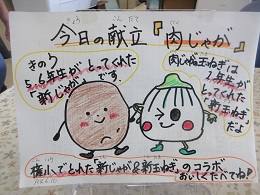 今日の献立『肉じゃが』
きのう
5,6年生が
とってくれた
「新じゃが」です
肉じゃが玉ねぎは
2年生が
とってくれた
「新玉ねぎ」
だよ
小でとれた新じゃが&新玉ねぎのコラボ
おいしくたべてね!